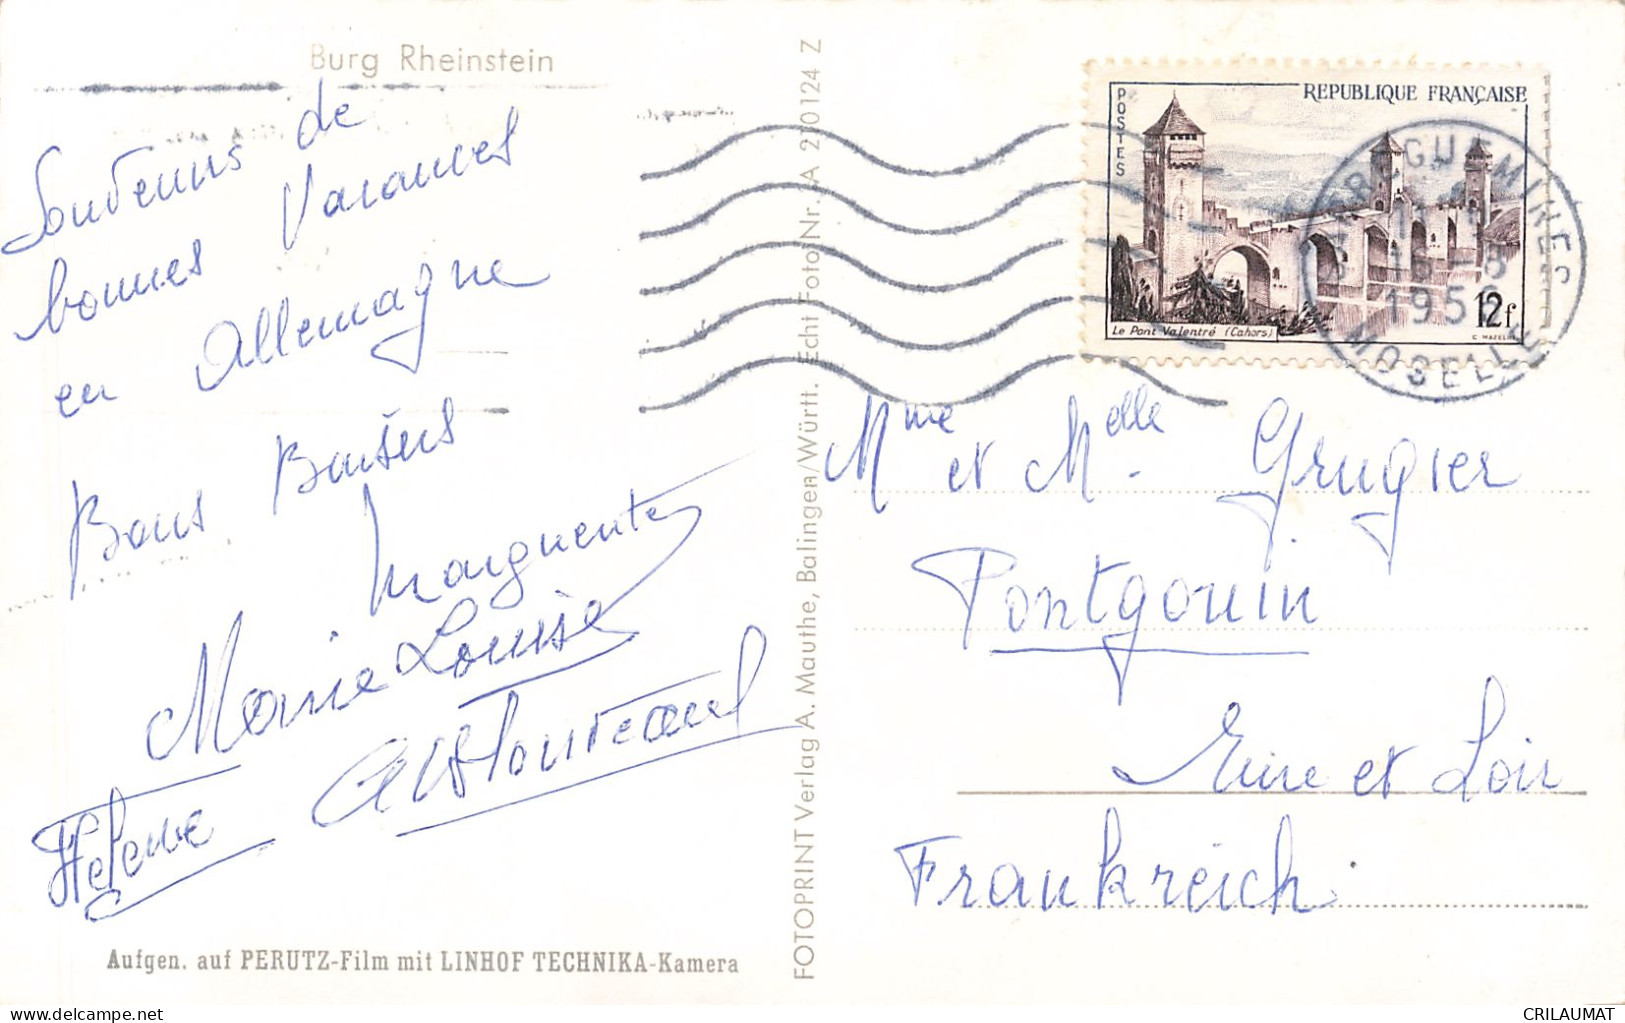 Burg Rheinstein
Souvenirs de
bonnes Vacances
en Allemagne
Bons Baisers
Marguerite
Marie Louise
Helene
Aufgen. auf PERUTZ-Film mit LINHOF TECHNIKA-Kamera
FOTOPRINT Verlag A. Mauthe, Balingen/Württ. Echt Foto Nr. A 210124 Z
POSTES
REPUBLIQUE FRANÇAISE
Le Pont Valentré (Cahors)
12f
C. MAZELIN
SARREGUEMINES
16-8
1956
MOSELLE
Mme et Melle Grugier
Pontgouin
Eure et Loir
Frankreich
CRILAUMAT